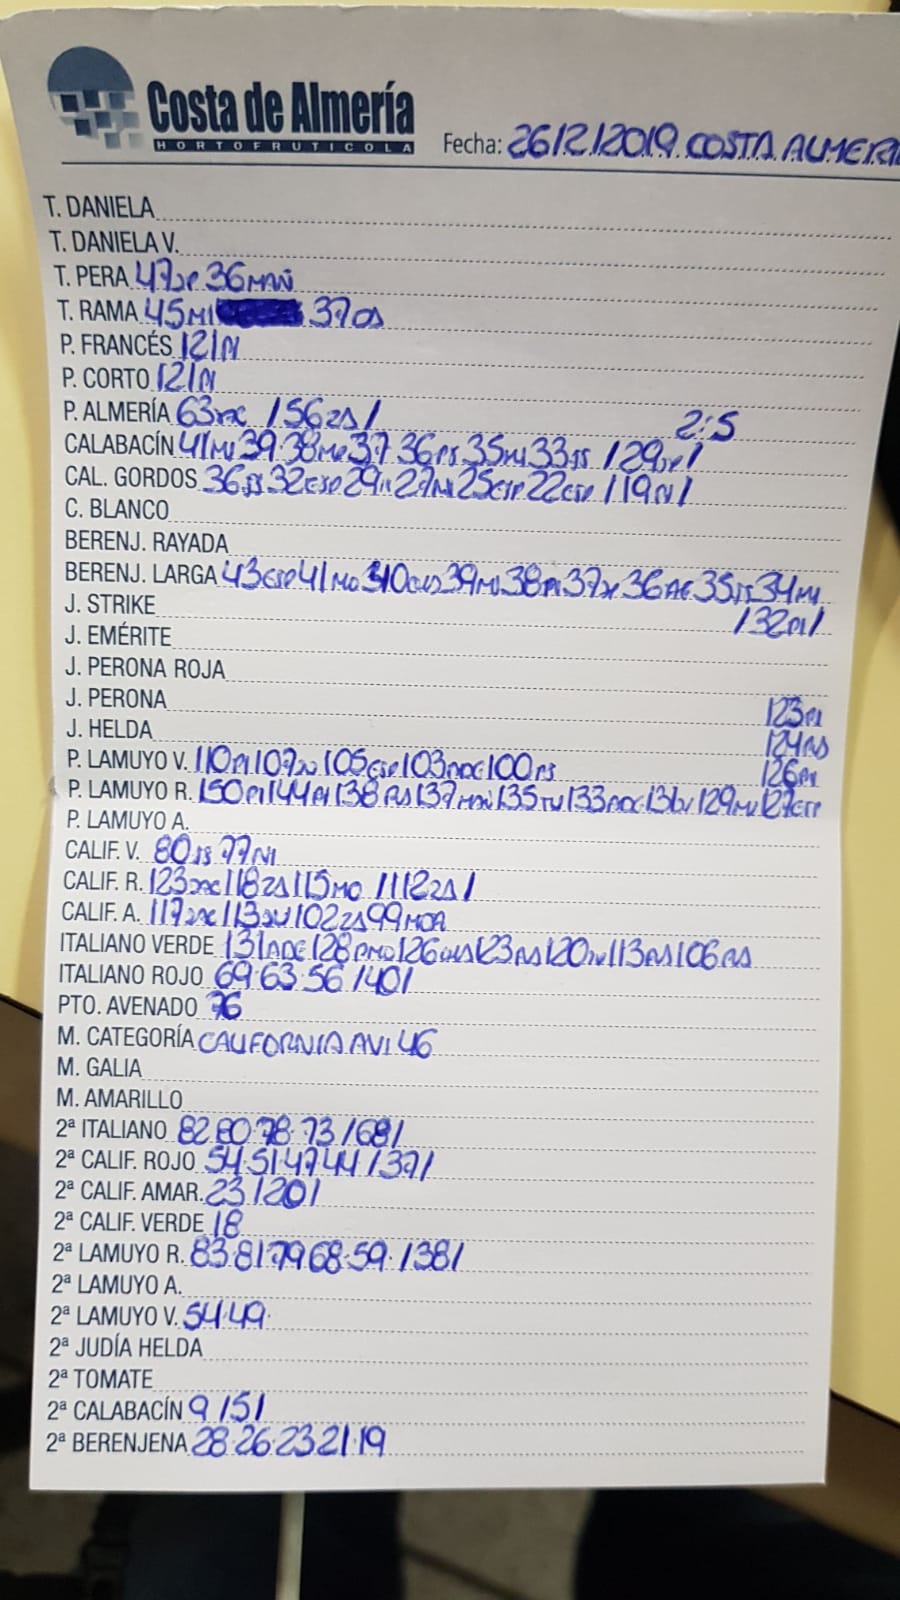 Costa de Almería
HORTOFRUTICOLA
Fecha: 26/12/2019 COSTA ALMERIA
T. DANIELA
T. DANIELA V.
T. PERA 47 36MAÑ
T. RAMA 45MI 37
P. FRANCÉS 121N
P. CORTO 121N
P. ALMERÍA 63 /56ZA/ 2:5
CALABACÍN 41MU 39·38 37 36 35 33 /29/
CAL. GORDOS 36 32ESP 29 27 25ESP 22ESP /19N/
C. BLANCO
BERENJ. RAYADA
BERENJ. LARGA 43ESP 41MO 40 39MU 38 37 36AE 35 34
/32/
J. STRIKE
J. EMÉRITE
J. PERONA ROJA
J. PERONA 123
J. HELDA 124
P. LAMUYO V. 110 107 105ESP 103 100 126
P. LAMUYO R. 150 144 138 137MAÑ 135 133 131 129 127ESP
P. LAMUYO A.
CALIF. V. 80 77NI
CALIF. R. 123 118ZA 115MO /112ZA/
CALIF. A. 117 113 102ZA 99MOA
ITALIANO VERDE 131ADE 128 126 123 120 113 106
ITALIANO ROJO 69·63·56 /40/
PTO. AVENADO 76
M. CATEGORÍA CALIFORNIA AVI 46
M. GALIA
M. AMARILLO
2ª ITALIANO 82 80·78·73 /68/
2ª CALIF. ROJO 54 51 47 44 /37/
2ª CALIF. AMAR. 23 /20/
2ª CALIF. VERDE 18
2ª LAMUYO R. 83·81·79·68·59· /38/
2ª LAMUYO A.
2ª LAMUYO V. 54·49·
2ª JUDÍA HELDA
2ª TOMATE
2ª CALABACÍN 9 /5/
2ª BERENJENA 28·26·23·21·19